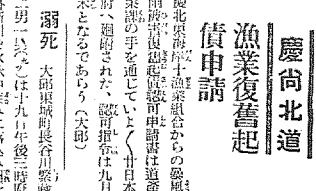 慶尚北道
漁業復舊起
債申請
慶北東海岸十漁業組合からの暴風
雨被害復舊起債認可申請書は道產
業課の手を通じていよ〱廿日本
府へ廻附された、認可指令は九月
末となるであらう(大邱)
溺死 大邱東城町長谷川繁
二男一は十九日午後三時府